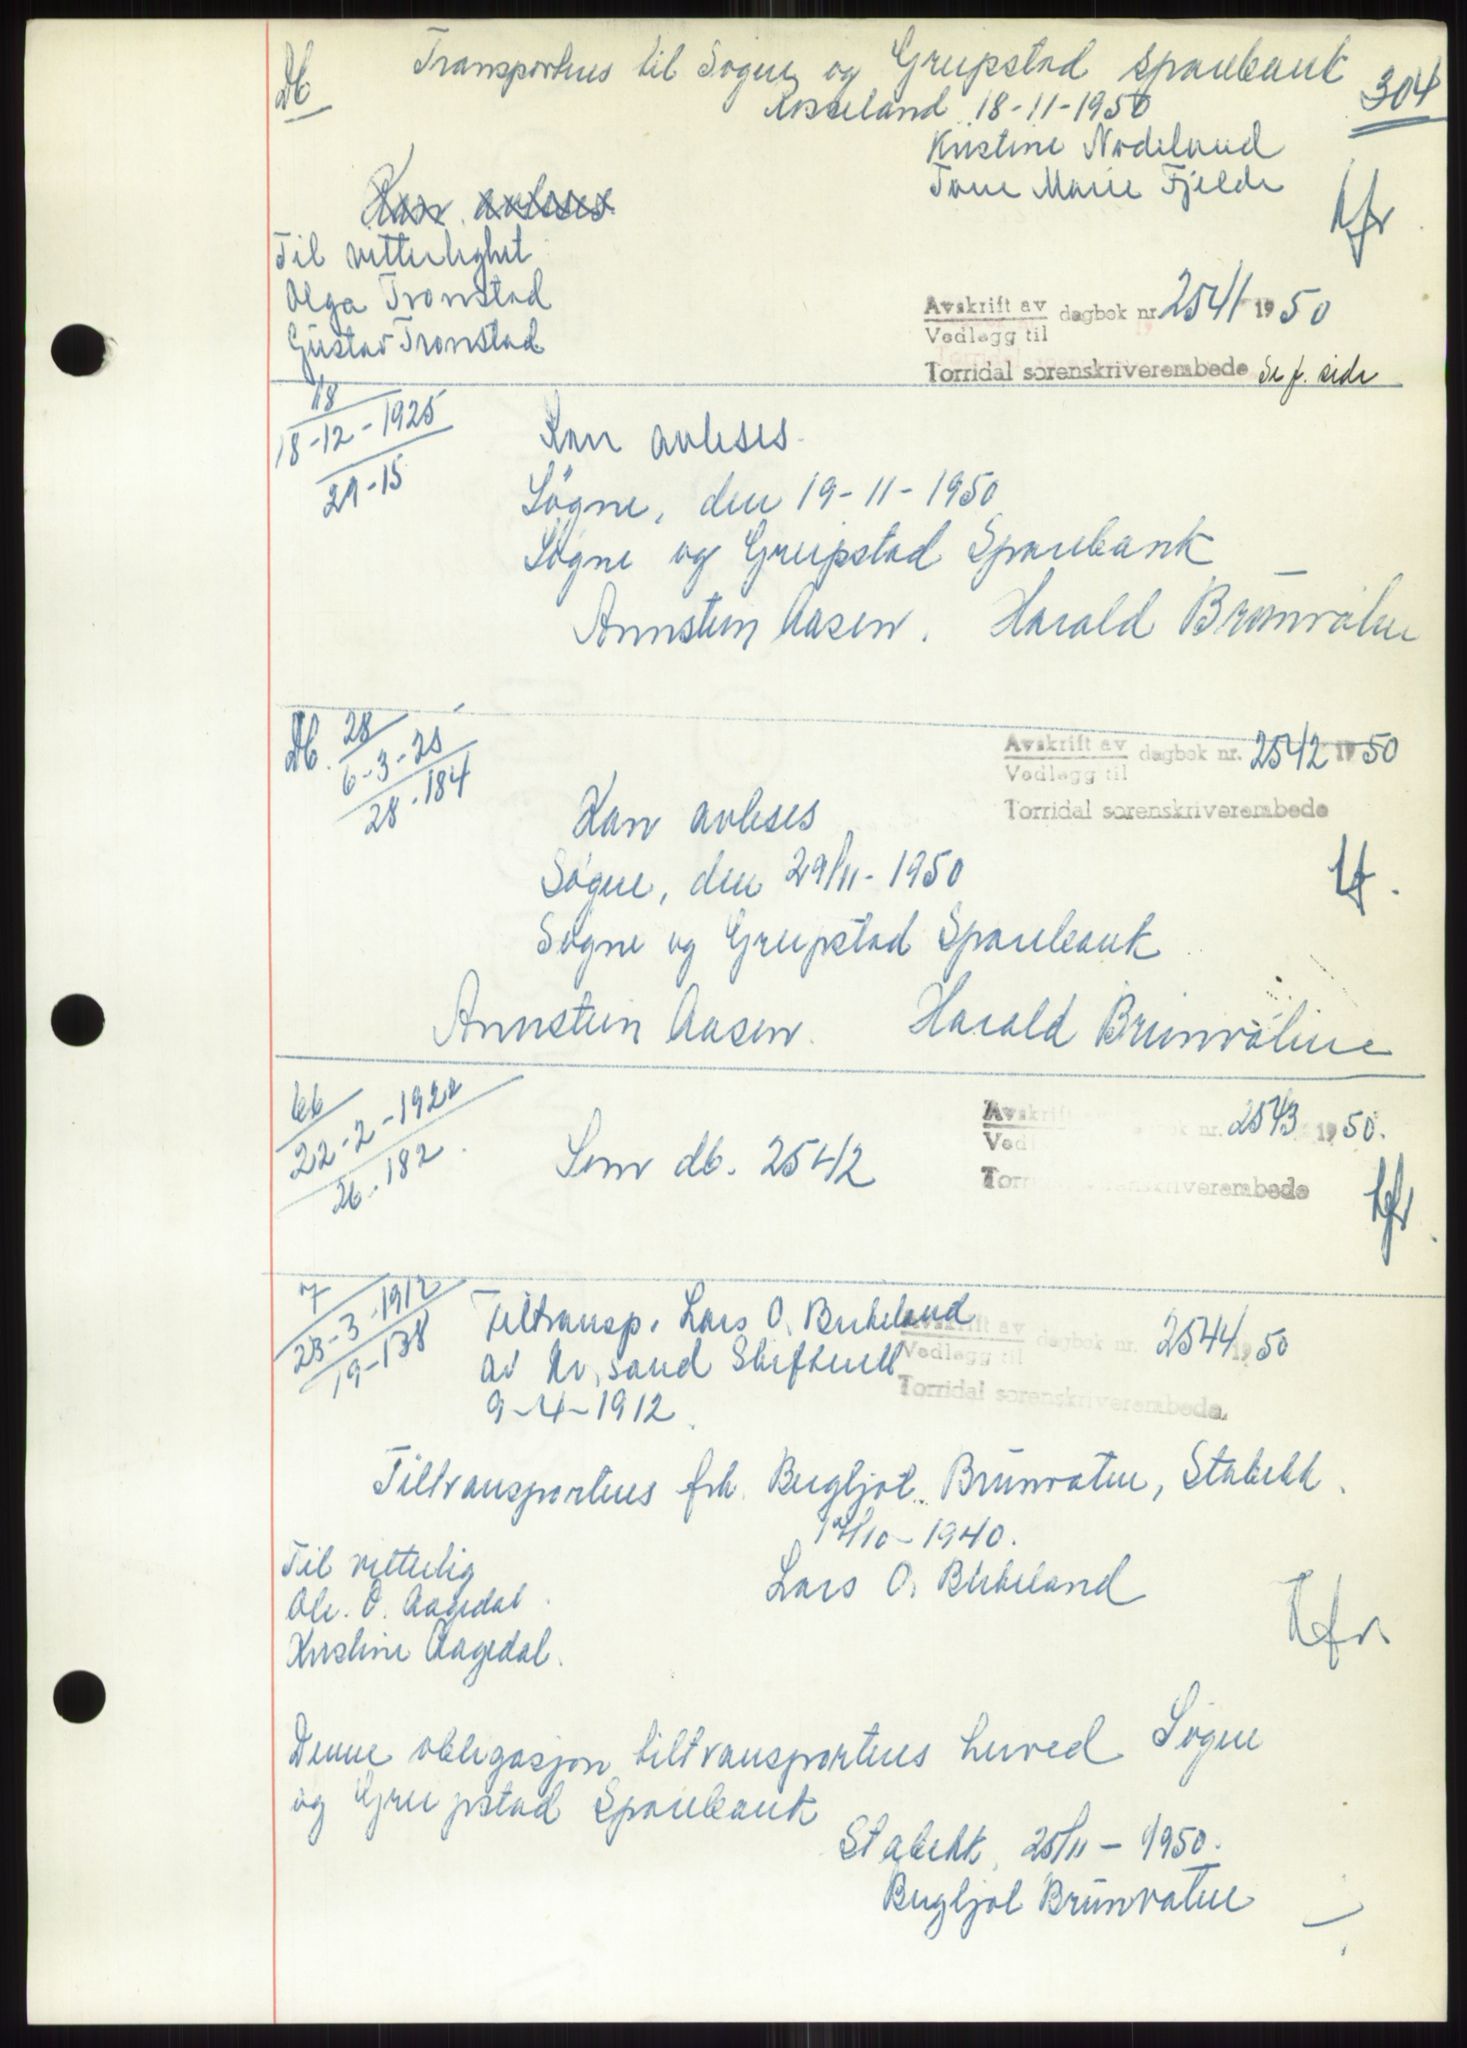 304
Db
Transporteres til Søgne og Greipstad Sparebank
Rosseland 18-11-1950
Kristine Nodeland
Tone Marie Fjelde
Kan avleses
Til vitterlighet
Olga Tronstad
Gustav Tronstad
Avskrift av
Vedlegg til
dagbok nr. 2541 1950
Torridal sorenskriverembede Se f. side
118
18-12-1925
29-15
Kan avleses.
Søgne, den 19-11-1950
Søgne og Greipstad Sparebank
Annstein Aasen. Harald Brunvatne
Db. 28
6-3-25
28-184
Avskrift av
Vedlegg til
dagbok nr. 2542 1950
Torridal sorenskriverembede
Kan avleses
Søgne, den 29/11-1950
Søgne og Greipstad Sparebank
Annstein Aasen. Harald Brunvatne
66
22-2-1922
26-182.
Som db. 2542
Avskrift
Vedl
bok nr. 2543 1950.
Torridal sorenskriverembede
7
23-3-1912
19-138
Tiltransp. Lars O. Birkeland
av Kr.sand Skifterett
9-4-1912.
Avskrift av
Vedlegg til
dagbok nr. 2544 1950
Torridal sorenskriverembede.
Tiltransporteres frk. Bergljot Brunvatne, Stabekk.
17/10-1940.
Lars O. Birkeland
Til vitterlig
Ole. O. Aagedal.
Kristine Aagedal.
Denne obligasjon tiltransporteres herved Søgne
og Greipstad Sparebank
Stabekk, 25/11-1950.
Bergljot Brunvatne